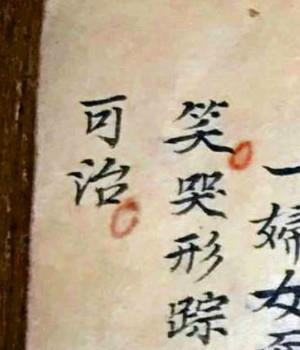 一婦女
笑哭形踪
可治